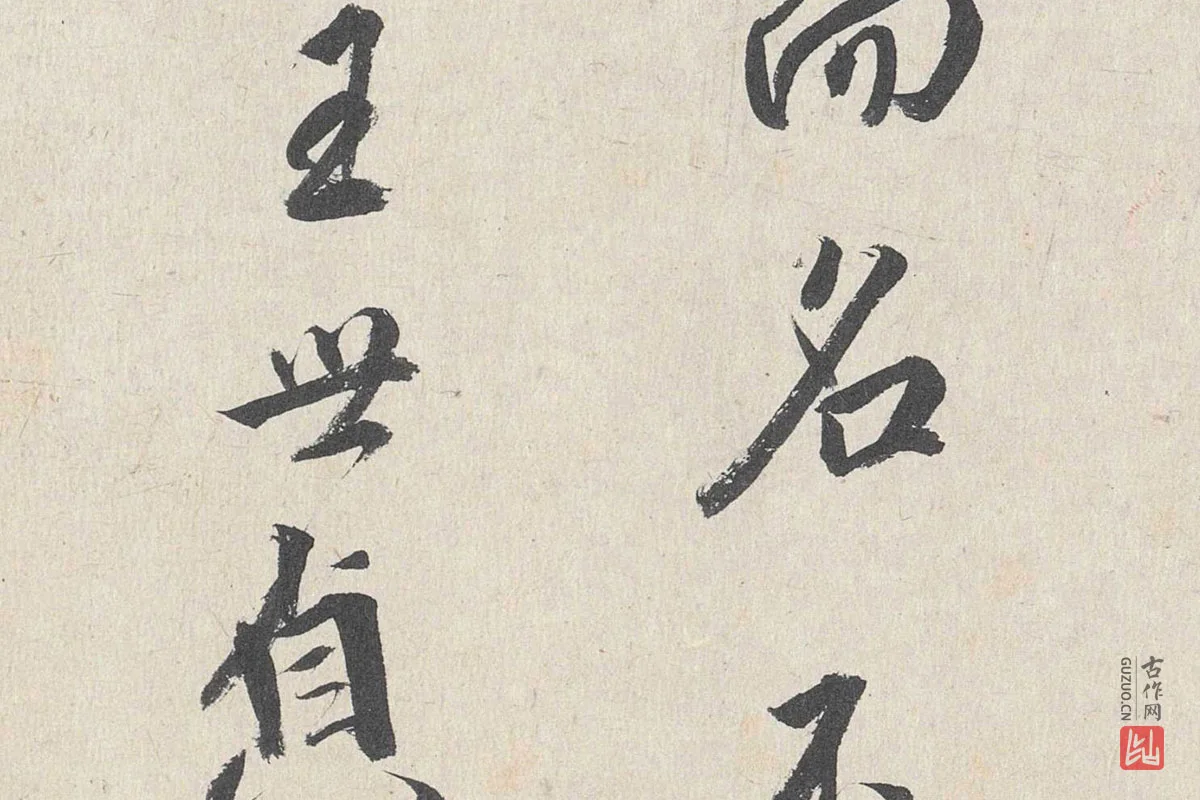 而名不
王世貞
古作网
GUZUO.CN